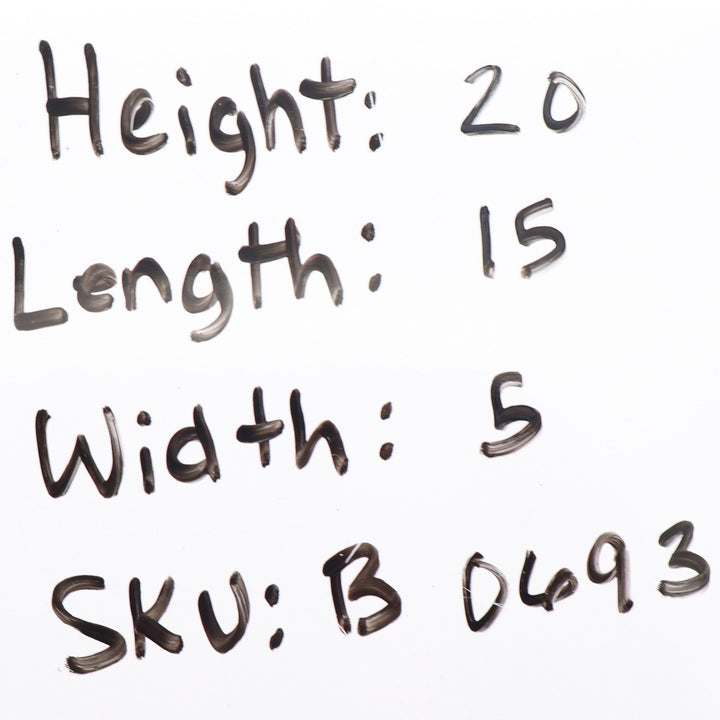 Height: 20
Length: 15
Width: 5
SKU: B 0693